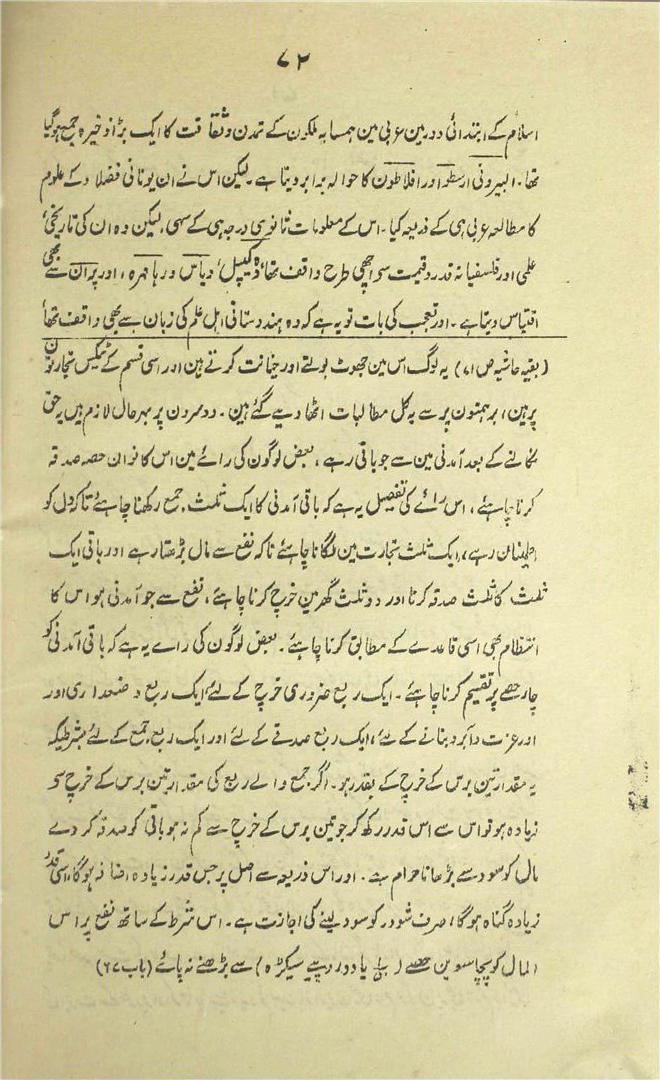 ۷۲
اسلام کے ابتدائی دور مین عربی مین ہمسایہ ملکون کے تمدن وثقافت کا ایک بڑا ذخیرہ جمع ہوگیا
تھا۔ البیرونی ارسطو اور افلاطون کا حوالہ برابر دیتا ہے۔ لیکن اس نے ان یونانی فضلاء کے علوم
کا مطالعہ عربی ہی کے ذریعہ کیا۔ اس کے معلومات ثانوی درجہ ہی کے سہی، لیکن وہ ان کی تاریخی،
علمی اور فلسفیانہ قدر وقیمت سے اچھی طرح واقف تھا، وہ کیپل، ویاس ورہا مہرہ، اور پران سے بھی
اقتباس دیتا ہے۔ اور تعجب کی بات تو یہ ہے کہ وہ ہندوستانی اہل علم کی زبان سے بھی واقف تھا
(بقیہ حاشیہ ص ۷۱) یہ لوگ اس مین جھوٹ بولتے اور خیانت کرتے ہین اور اسی قسم کے ٹیکس تجارتون
پر ہین، برہمنون پر سے یہ کل مطالبات اٹھا دیے گئے ہین۔ دوسرون پر بہرحال لازم ہیں یہ حق
نکالنے کے بعد آمدنی مین سے جو باقی رہے، بعض لوگون کی رائے مین اس کا نوان حصہ صدقہ
کرنا چاہئے، اس رائے کی تفصیل یہ ہے کہ باقی آمدنی کا ایک ثلث جمع رکھنا چاہئے تاکہ دل کو
اطمینان رہے، ایک ثلث تجارت مین لگانا چاہئے تاکہ نفع سے مال بڑھتا رہے اور باقی ایک
ثلث کا ثلث صدقہ کرنا اور دو ثلث گھر مین خرچ کرنا چاہئے، نفع سے جو آمدنی ہو اس کا
انتظام بھی اسی قاعدے کے مطابق کرنا چاہئے۔ بعض لوگون کی رائے یہ ہے کہ باقی آمدنی کو
چار حصے پر تقسیم کرنا چاہئے۔ ایک ربع ضروری خرچ کے لئے، ایک ربع وضعداری اور
اور عزت وآبرو بنانے کے لئے، ایک ربع صدقے کے لئے اور ایک ربع جمع کے لئے بشرطیکہ
یہ مقدار تین برس کے خرچ کے بقدر ہو۔ اگر جمع والے ربع کی مقدار تین برس کے خرچ سے
زیادہ ہو تو اس سے اس قدر رکھ کر جو تین برس کے خرچ سے کم نہ ہو باقی کو صدقہ کر دے
مال کو سود سے بڑھانا حرام ہے۔ اور اس ذریعہ سے اصل پر جس قدر زیادہ اضافہ ہوگا، اسی قدر
زیادہ گناہ ہوگا، صرف شودر کو سود لینے کی اجازت ہے۔ اس شرط کے ساتھ نفع پر اس
المال کو پچاسوین حصے ( یا دو روپیے سیکڑہ) سے بڑھنے نہ پائے (باب ۶۷)